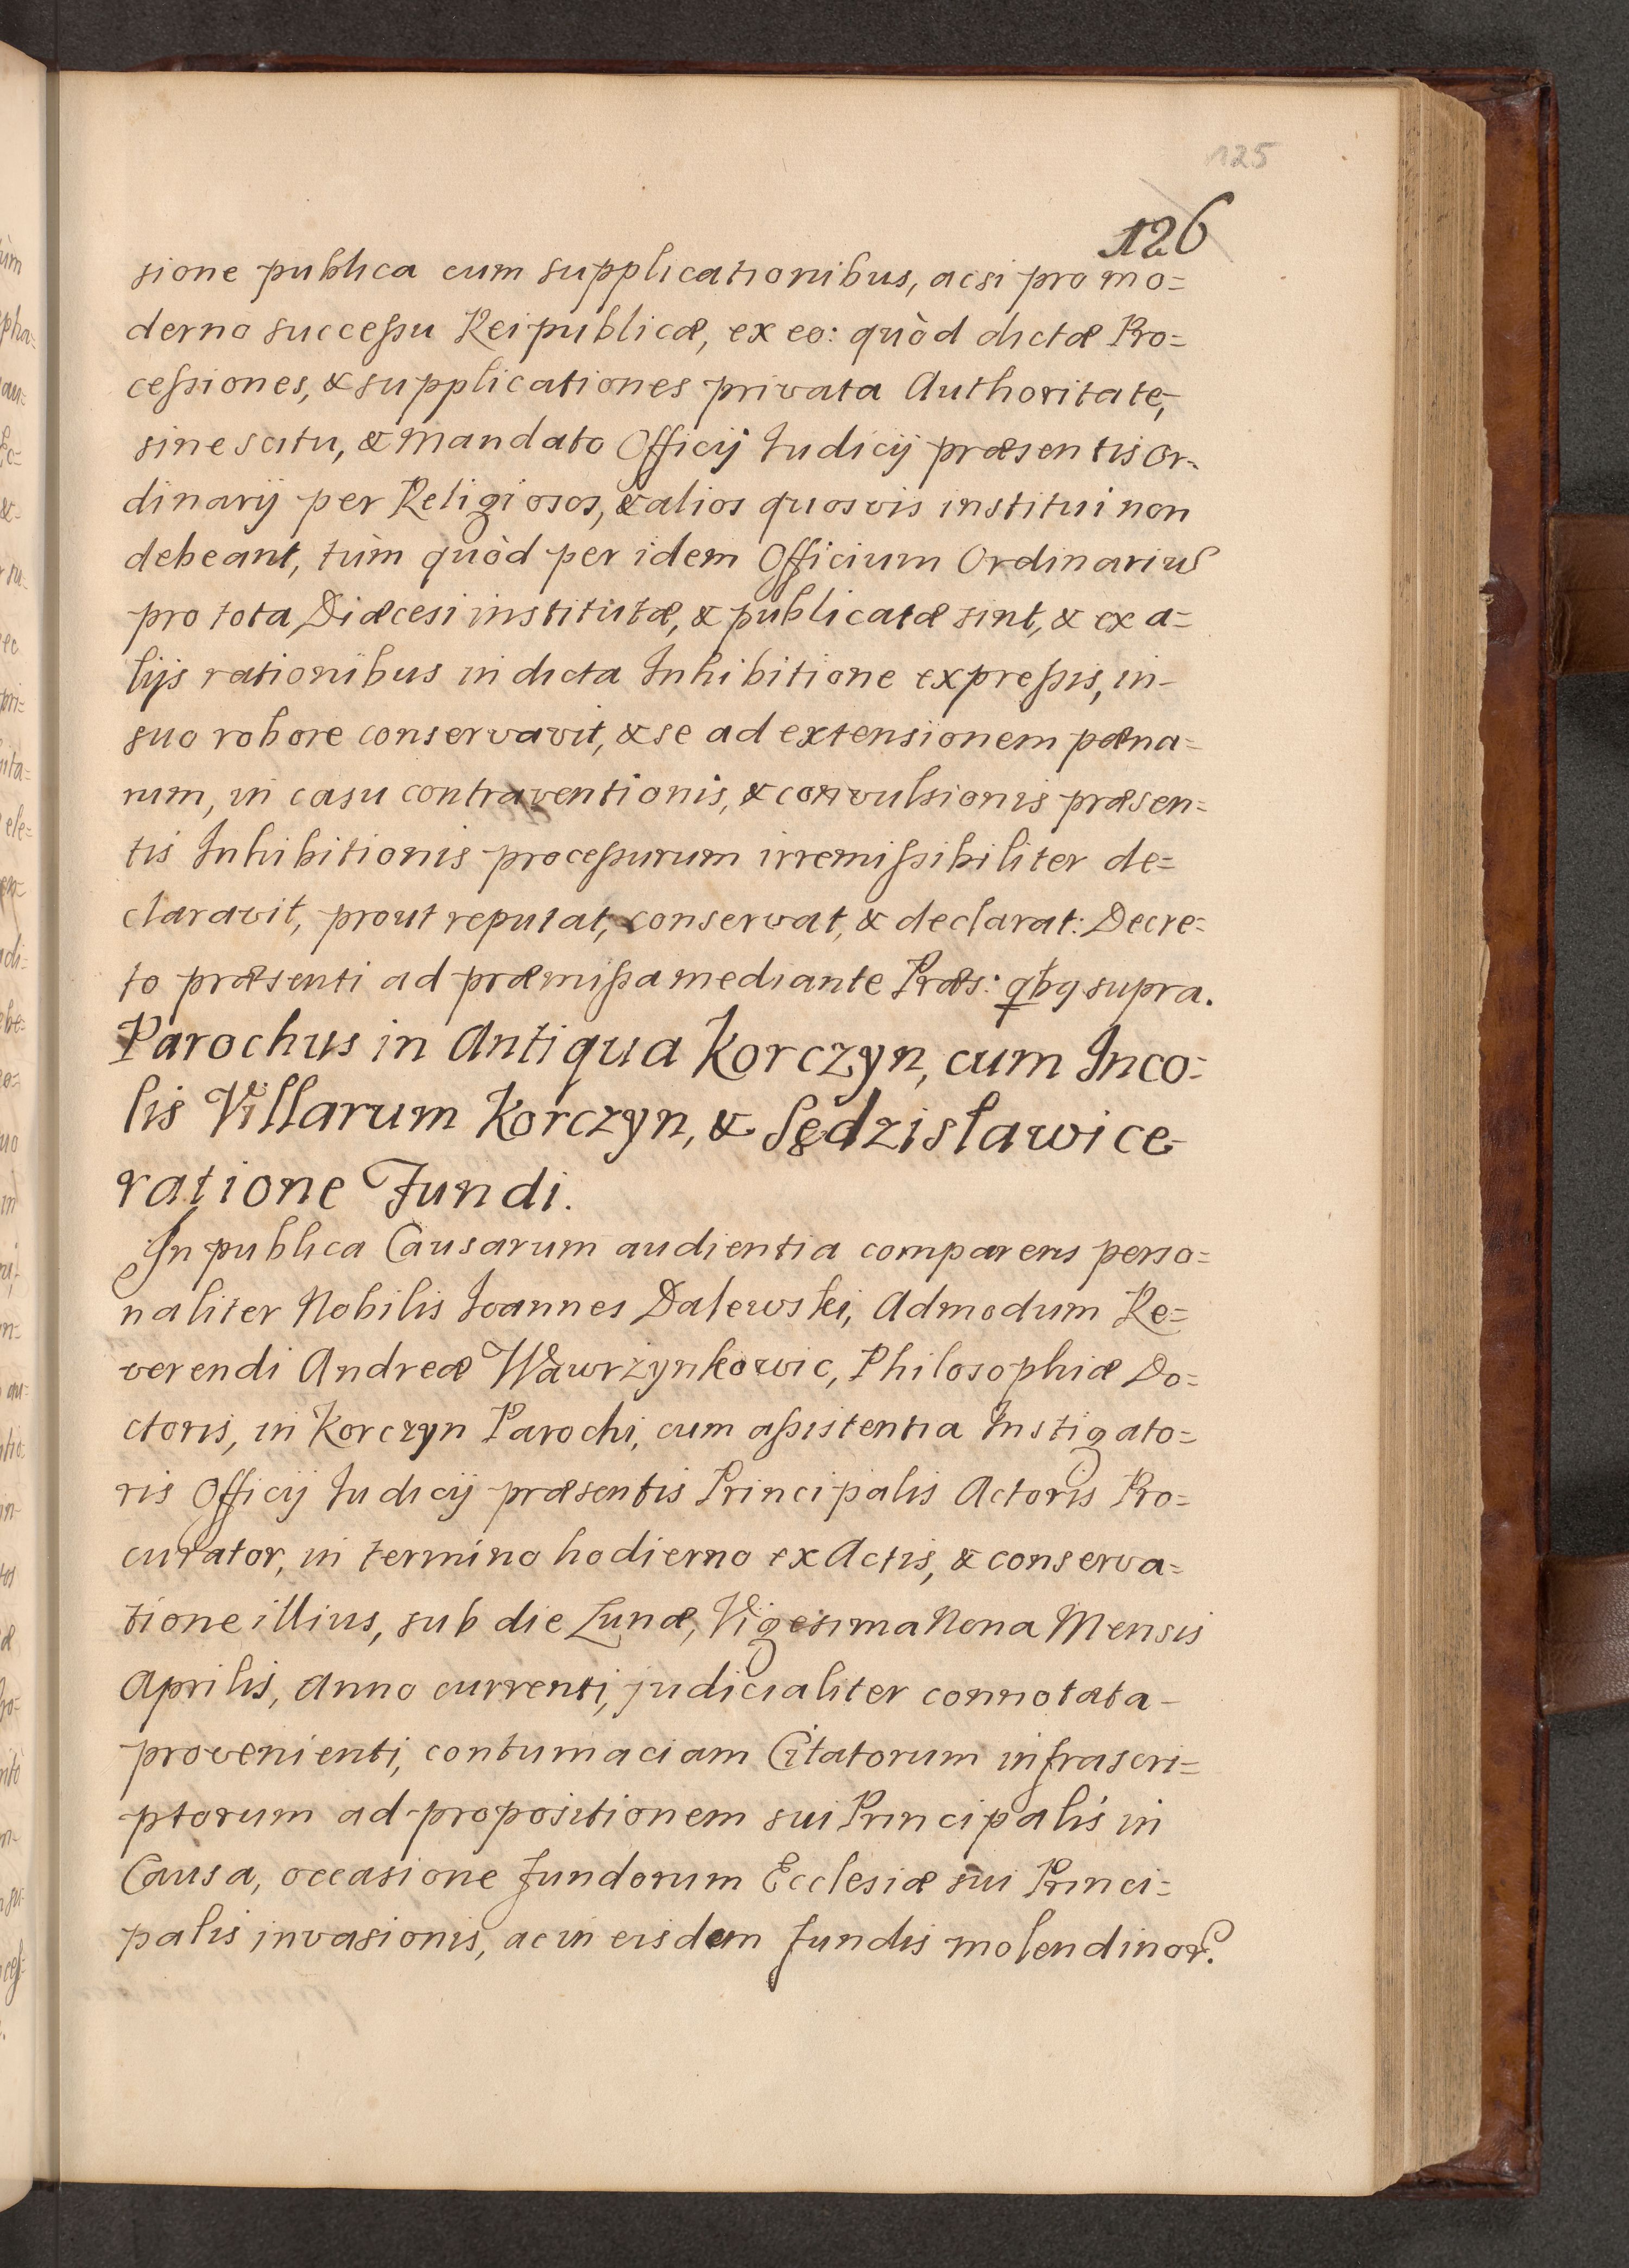 125
126
sione publica cum supplicationibus, acsi pro mo=
derno successu Reipublicæ, ex eo: quòd dictæ Pro=
cessiones, & supplicationes privata Authoritate,
sine scitu, & Mandato Officij Iudicij præsentis Or-
dinarij per Religiosos, & alios quosvis institui non
debeant, tùm quòd per idem Officium Ordinarius
pro tota Diæcesi institutæ, & publicatæ sint, & ex a=
lijs rationibus in dicta Inhibitione expressis, in-
suo robore conservavit, & se ad extensionem pæna=
rum, in casu contraventionis, & convulsionis præsen=
tis Inhibitionis processurum irremissibiliter de=
claravit, prout reputat, conservat, & declarat: Decre=
to præsenti ad præmissa mediante Præs: qbg supra.
Parochus in Antiqua Korczyn, cum Inco=
lis Villarum Korczyn, & Sędzisławice
ratione Fundi.
In publica Causarum audientia comparens perso=
naliter Nobilis Ioannes Dalewski, Admodum Re=
verendi Andreæ Wawrzynkowic, Philosophiæ Do=
ctoris, in Korczyn Parochi, cum assistentia Instigato=
ris Officij Iudicij præsentis Principalis Actoris Pro=
curator, in termino hodierno ex Actis, & conserva=
tione illius, sub die Lunæ, Vigesima Nona Mensis
Aprilis, Anno currenti, judicialiter connotata-
provenienti, contumaciam Citatorum infrascri=
ptorum ad propositionem sui Principalis in
Causa, occasione fundorum Ecclesiæ sui Princi=
palis invasionis, ac in eisdem fundis molendinor.